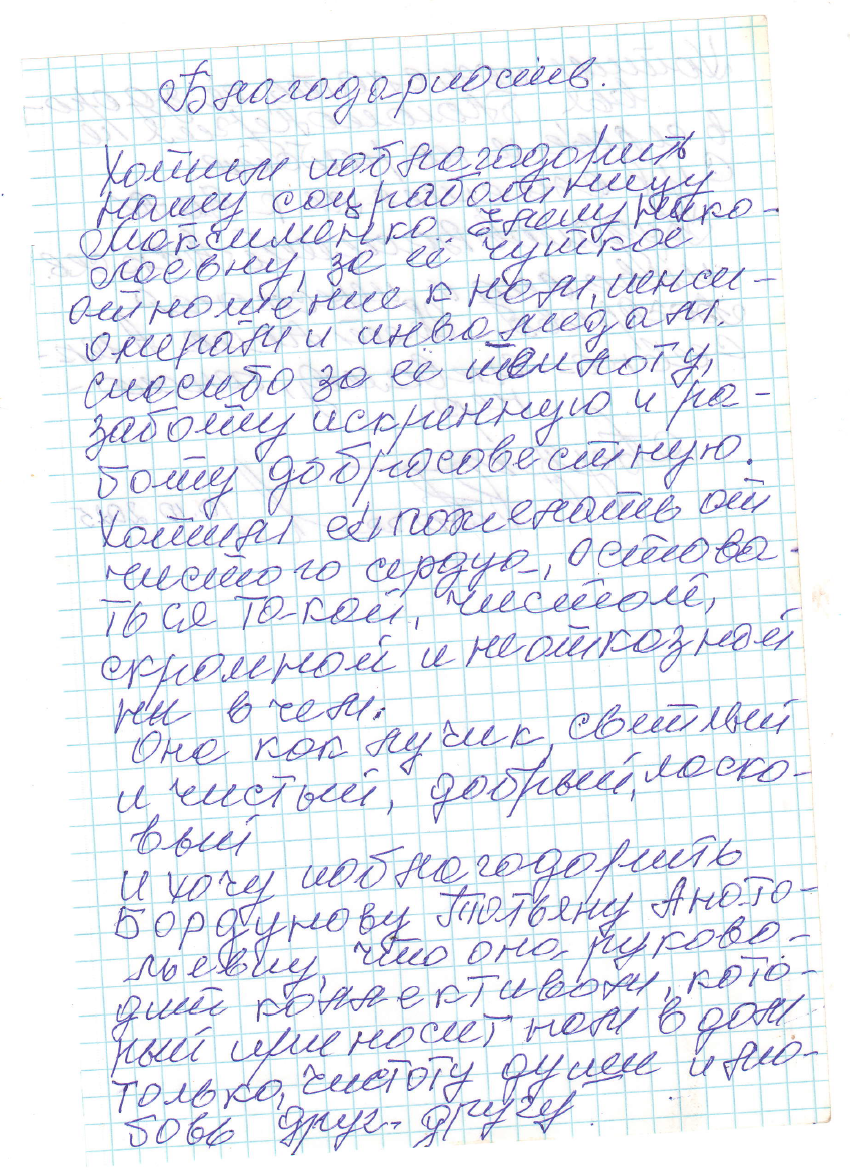 Благодарность.
Хотим поблагодарить
нашу соц работницу
Максименко Нико-
лаевну, за её чуткое
отношение к нам, пенси-
онерам и инвалидам.
спасибо за её теплоту,
заботу искреннюю и ра-
боту добросовестную.
Хотим ей пожелать от
чистого сердца, остава-
ться такой, чистой,
скромной и неотказной
ни в чем.
Она как лучик светлый
и чистый, добрый, ласко-
вый
И хочу поблагодарить
Бордунову Татьяну Анато-
льевну, что она руково-
дит коллективом, кото-
рый приносит нам в дом
только, чистоту души и лю-
бовь друг-другу